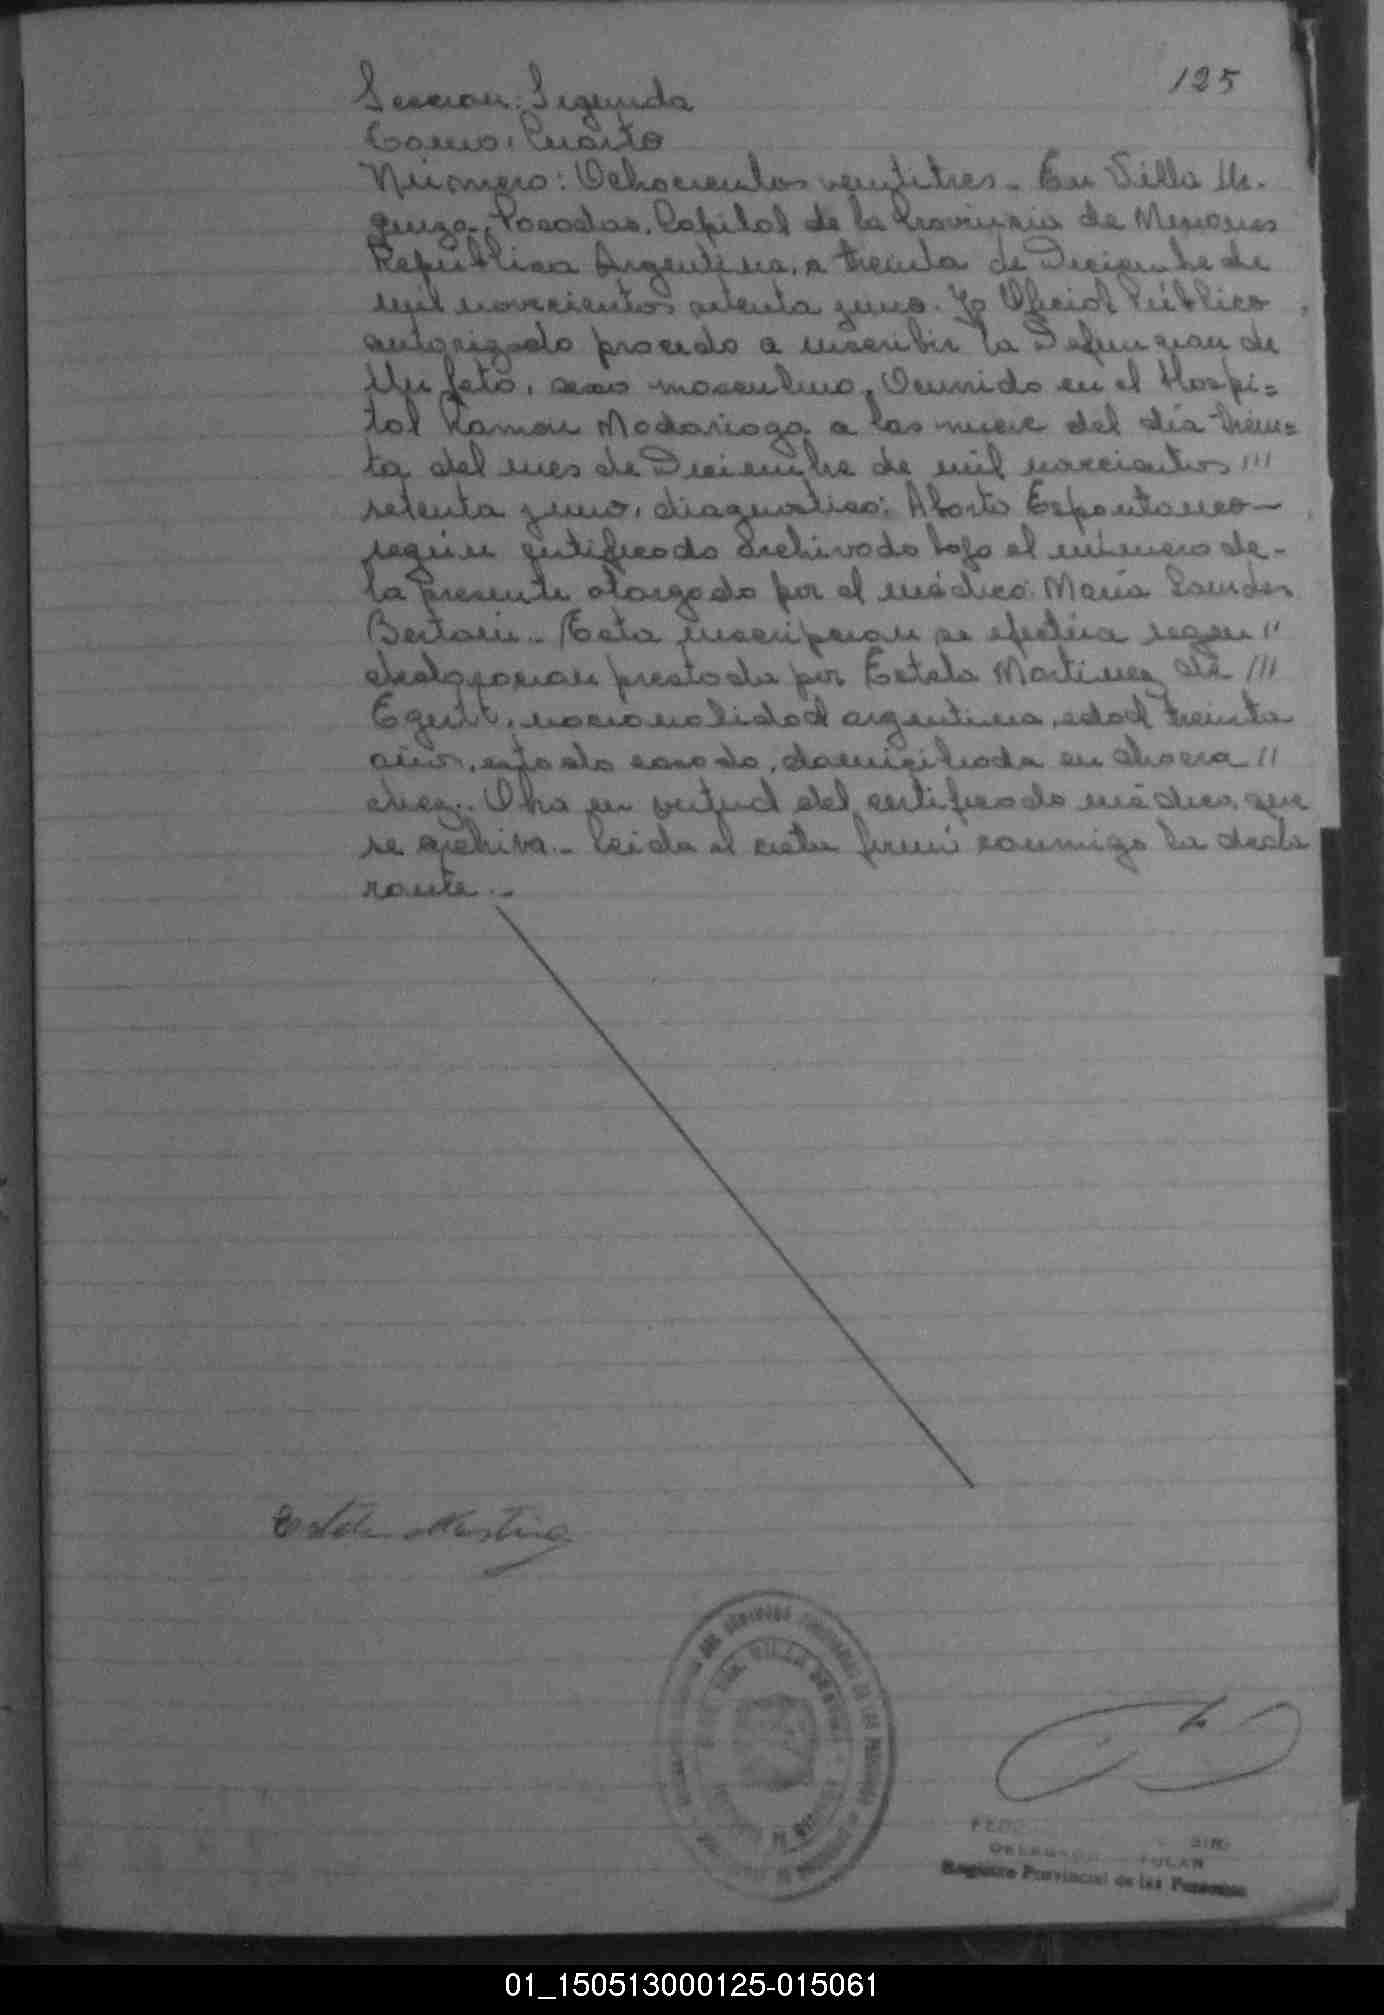 125
Sección: Segunda
Tomo: Cuarto
Número: Ochocientos veintitres.- En Villa Ur-
quiza, Posadas, Capital de la Provincia de Misiones
República Argentina, a treinta de Diciembre de
mil novecientos setenta y uno. Yo Oficial Público
autorizado procedo a inscribir la Defunción de
Un feto, sexo masculino, Ocurrido en el Hospi=
tal Ramon Madariaga a las nueve del día trein=
ta del mes de Diciembre de mil novecientos ///
setenta y uno, diagnostico: Aborto Espontaneo—
según certificado archivado bajo el número de-
la presente otorgado por el médico: María Lourdes
.- Esta inscripcion se efectúa segun //
declaracion prestada por Estela Martinez de ///
nacionalidad argentina, edad treinta
años, estado casado, domiciliada en chacra //
diez.- Obra en virtud del certificado médico que
se archiva.- Leida el acta firmó conmigo la decla
rante.-
Estela Martinez
Registro Provincial de las Personas
01_150513000125-015061